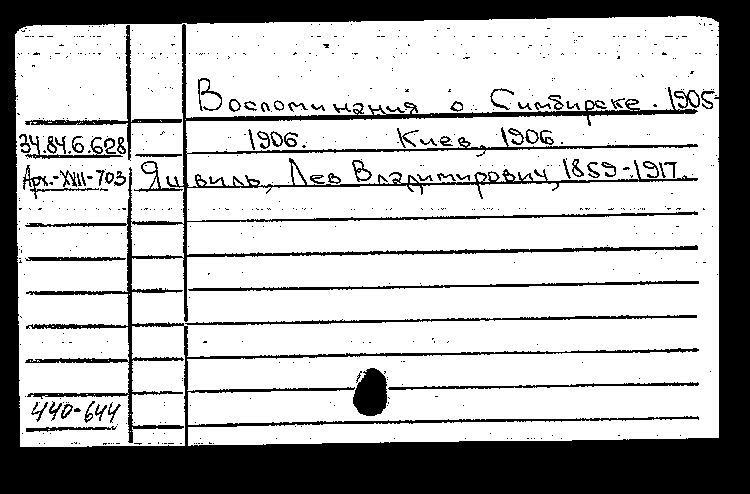 Воспоминания о Симбирске. 1905-
34.84.6.628 1906. Киев, 1906.
Арх.-XVIII-703 Яшвиль, Лев Владимирович, 1859-1917.
440-644